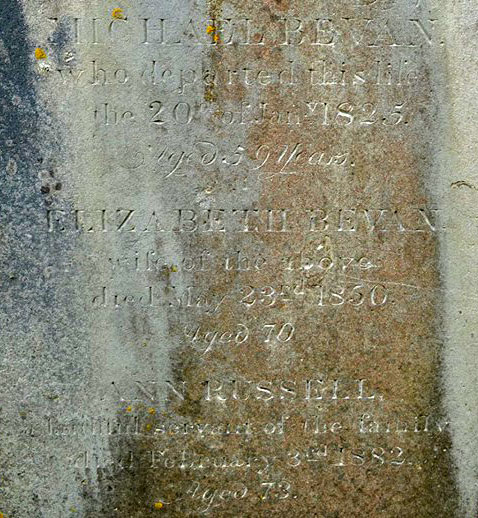 MICHAEL BEVAN.
who departed this life
the 20th of Jany 1825.
Aged 59 Years.
ELIZABETH BEVAN
wife of the above
died May 23rd 1850.
Aged 70
ANN RUSSELL.
a faithful servant of the family
died February 3rd 1882.
Aged 73.